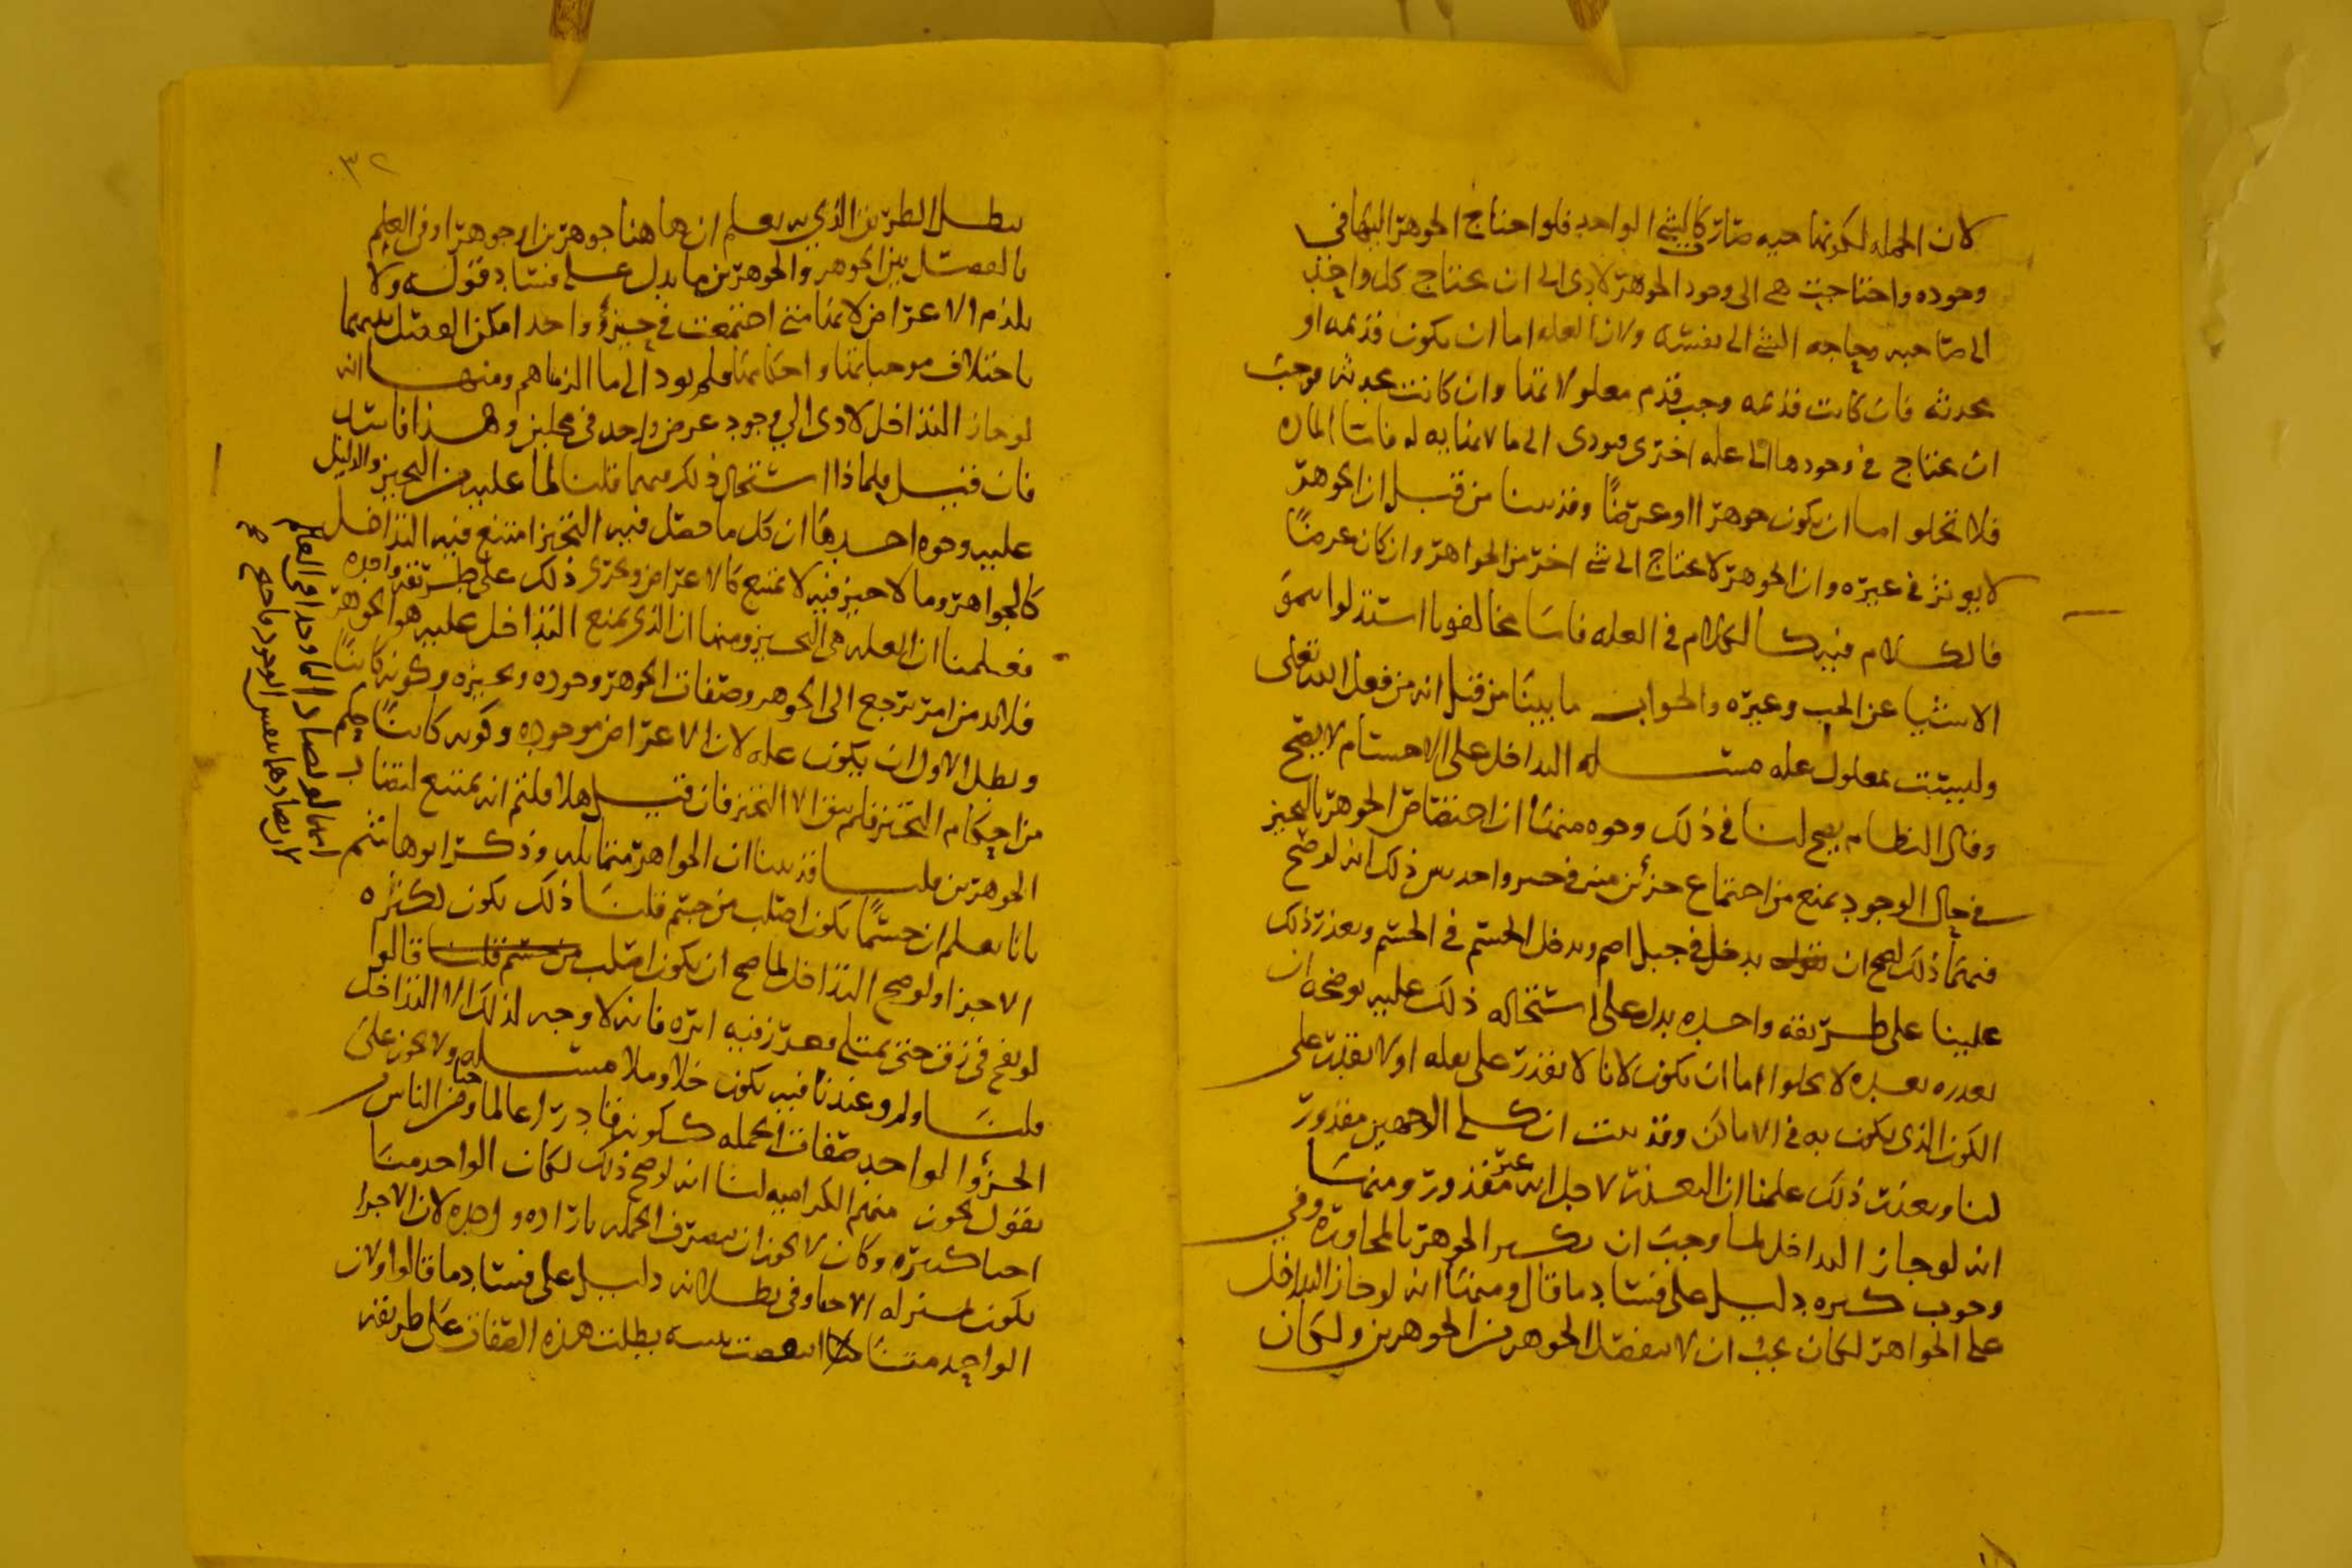 لان الجمله لكونها حيه صار كالشي الواحد فلو احتاج الجوهر اليها في
وجوده واحتاجت هي الى وجود الجوهر لادى الى ان يحتاج كل واحد
الى صاحبه وحاجه الشي الى نفسه ولان العله اما ان يكون قديمه او
محدثه فان كانت قديمه وجب قدم معلولاتها وان كانت محدثه وجب
ان يحتاج في وجودها الى عله اخرى فيودى الى ما لا نهايه له فاما الماده
فلا تخلو اما ان يكون جوهرا او عرضًا وقد بينا من قبل ان الجوهر
لا يوثر في غيره وان الجوهر لا يحتاج الى شي اخر من الجواهر وان كان عرضًا
فالكلام فيه كالكلام في العله فاما مخالفونا استدلوا بنمو
الاشيا عن الحب وغيره والجواب ما بينا من قبل انه من فعل الله تعالى
وليست بمعلول عله مسله التداخل على الاجسام لا يصح
وقال النظام يصح لنا في ذلك وجوه منها ان اختصاص الجوهر بالتحيز
في حال الوجود يمنع من اجتماع جزأين منه في حيز واحد يبين ذلك انه لو صح
فيهما ذلك لصح ان يدخل في جبل اصم ويدخل الجسم في الجسم وتعذر ذلك
علينا على طريقه واحده يدل على استحاله ذلك عليه يوضحه ان
تعذره بعده لا يخلوا اما ان يكون لانا لا نقدر على نعله او لا نقدر على
الكون الذي يكون به في الاماكن وقد بينت ان كلى الوجهين مقدور
لنا وتعذر ذلك علمنا ان التعذر لاجل انه غير مقدور ومنها
انه لو جاز التداخل لما وجب ان يكبر الجوهر بالمجاوره وفي
وجوب كبره دليل على فساد ما قال ومنها انه لو جاز التداخل
على الجواهر لكان يجب ان لا ينفصل الجوهر من الجوهرين ولكان
٣٢
يبطل الطريق الذي به يعلم ان هاهنا جوهرين او جوهرا وفي العلم
بالفصل بين الجوهر والجوهرين ما يدل على فساد قوله ولا
يلزم الاعراض لانها متى اجتمعت في جزؤ واحد امكن الفصل بينهما
باختلاف موجباتها واحكامها فلم يود الى ما الزمناهم ومنها انه
لو جاز التداخل لادى الي وجود عرض واحد في محلين وهذا فاسد
فان قيل فلماذا استحال ذلك فيهما قلنا لما عليه من التحيز والدليل
عليه وجوه احدها ان كل ما حصل فيه التحيز امتنع فيه التداخل
كالجواهر وما لا حيز فيه لا يمتنع كالاعراض وجرى ذلك على طريقه واحده
فعلمنا ان العله هي التحيز ومنها ان الذي يمنع التداخل عليه هو الجوهر
فلابد من امر يرجع الى الجوهر وصفات الجوهر وجوده وتحيزه وكونه كائنًا
وبطل الاول ان يكون عله لان الاعراض موجوده وكونه كائنًا حكم
من احكام التحيز فلم يبق الا التحيز فان قيل هلا قلتم انه يمتنع لتضاد
الجوهرين قلنا قد بينا ان الجواهر متماثله وذكر ابو هاشم
بانا نعلم ان جسمًا يكون اصلب من جسم قلنا ذلك يكون لكثره
الاجزا ولو صح التداخل لما صح ان يكون اصلب من جسم قلنا قالوا
لو نفخ في زق حتى يمتلي فغرز فيه ابره فانه لا وجه لذلك الا التداخل
قلنا ولم وعندنا فيه يكون خلا وملا مسله ولا يجوز على
الجزؤ الواحد صفات الجمله ككونه قادرا عالما حيا ومن الناس
يقول يجوز منهم الكراميه لنا انه لو صح ذلك لكان الواحد منا
احيا كثيره وكان لا يجوز ان يتصرف الجمله باراده واحده لان الاجزا
يكون بمنزله الاحيا وفي بطلانه دليل على فساد ما قالوا ولان
الواحد منا اذا انتقضت بنيته بطلت هذه الصفات على طريقه